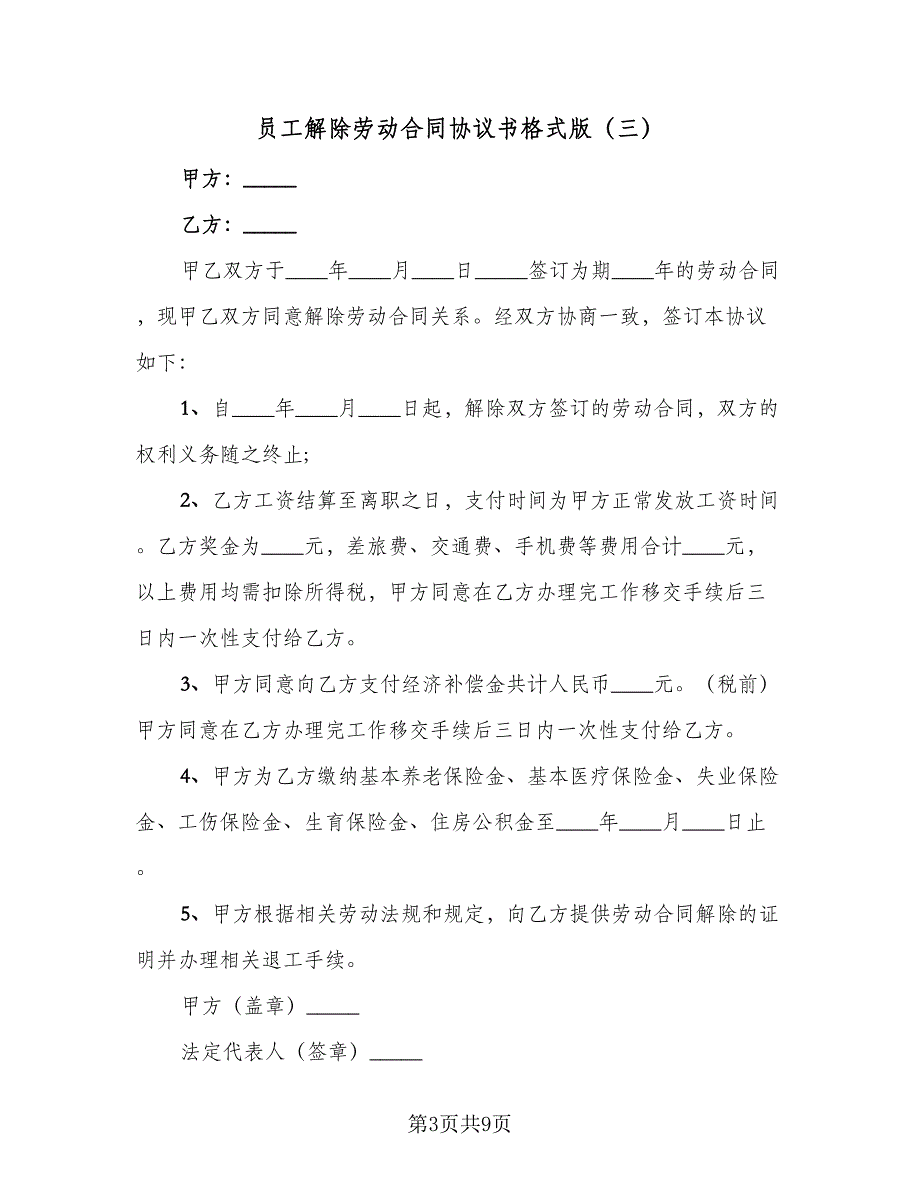 员工解除劳动合同协议书格式版（三）
甲方：_____
乙方：_____
甲乙双方于____年____月____日_____签订为期____年的劳动合同
，现甲乙双方同意解除劳动合同关系。经双方协商一致，签订本协议
如下：
1、自____年____月____日起，解除双方签订的劳动合同，双方的
权利义务随之终止;
2、乙方工资结算至离职之日，支付时间为甲方正常发放工资时间
。乙方奖金为____元，差旅费、交通费、手机费等费用合计____元，
以上费用均需扣除所得税，甲方同意在乙方办理完工作移交手续后三
日内一次性支付给乙方。
3、甲方同意向乙方支付经济补偿金共计人民币____元。（税前）
甲方同意在乙方办理完工作移交手续后三日内一次性支付给乙方。
4、甲方为乙方缴纳基本养老保险金、基本医疗保险金、失业保险
金、工伤保险金、生育保险金、住房公积金至____年____月____日止
。
5、甲方根据相关劳动法规和规定，向乙方提供劳动合同解除的证
明并办理相关退工手续。
甲方（盖章）_____
法定代表人（签章）_____
第3页共9页